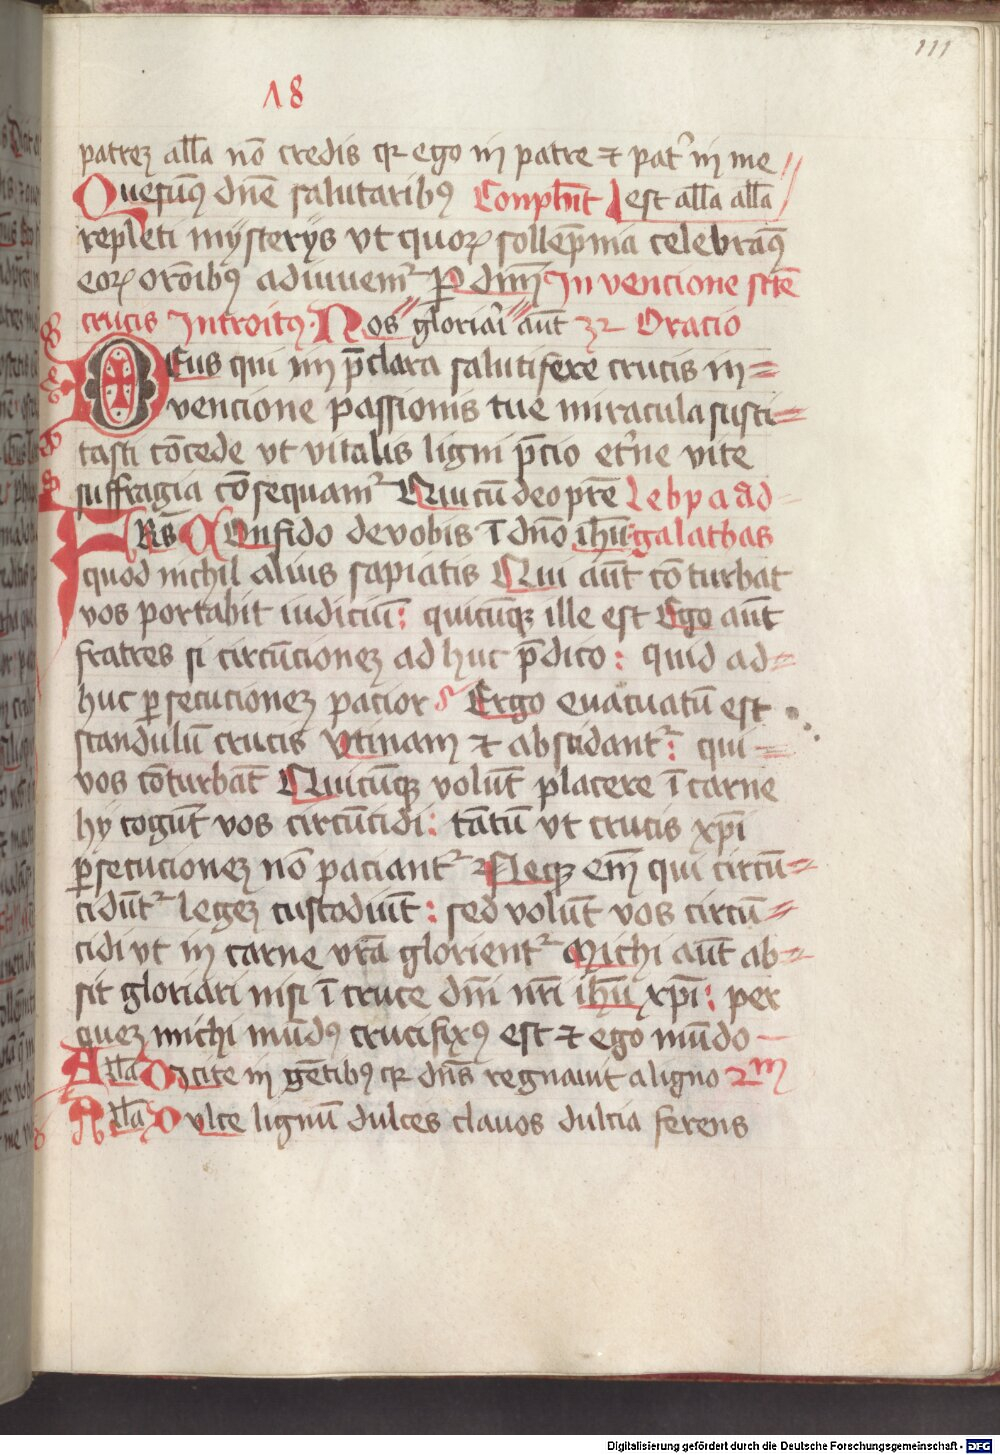 111
18
patrez all'a nō credis qr ego in patre et pat' in me
Quesumꝰ dn̄e salutaribꝰ Compln̄t est all'a all'a
repleti mysteryis vt quorꝝ sollēpnia celebramꝰ
eorꝝ orōnibꝰ adiuvem̄ P dm̄ In vencione scē
crucis Introitꝰ Nos gloriari aūt Oracio
Deus qui in p̄clara salutifere crucis in=
vencione passionis tue miracula susci=
tasti cōcede vt vitalis ligni p̄cio et'ne vite
suffragia cōsequam̄ Qui cū deo pr̄e ad
Frs̄ Confido de vobis ī dn̄o ih̄u galathas
quod nichil alius sapiatis Qui aūt cōturbat
vos portabit iudiciū: quicūqꝫ ille est Ego aūt
fratres si circūcionez ad huc p̄dico: quid ad=
huc ꝑsecucionez pacior Ergo evacuatū est
scandulū crucis Vtinam et abscidant': qui=
vos cōturbāt Quicūqꝫ volūt placere ī carne
hy cogūt vos circūcidi: tātū vt crucis xp̄i
ꝑsecucionez nō paciant' Neqꝫ em̄ qui circū=
cidūt' legez custodiūt: sed volūt vos circū=
cidi vt in carne vr̄a glorient' Michi aūt ab=
sit gloriari nisi ī cruce dn̄i nr̄i ih̄u xp̄i: per
quez michi mūdꝰ crucifixꝰ est et ego mūdo
All'a Dicite in gētibꝰ qr dn̄s regnavit a ligno 2m
All'a Dulce lignū dulces clavos dulcia ferens
Digitalisierung gefördert durch die Deutsche Forschungsgemeinschaft - DFG